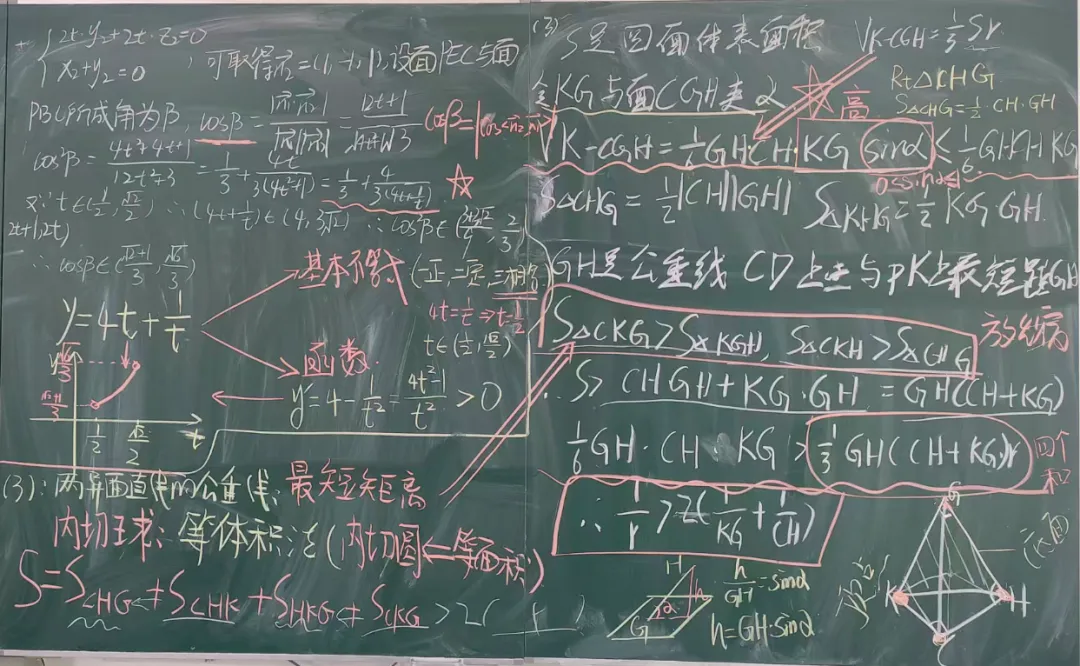 {2t·y₂+2t·z₂=0
x₂+y₂=0
可取得n₂=(1,-1,1),设面PEC与面
PBC所成角为β, cosβ=
cosβ=|cos<n₂,n₁>|
cos²β=(4t²+4t+1)/(12t²+3)=1/3+4t/(3(4t²+1))=1/3+4/(3(4t+1/t))
又∵t∈(1/2,√2/2) ∴(4t+1/t)∈(4,3√2) ∴cos²β∈
∴cosβ∈((√2+1)/3,√6/3)
y=4t+1/t
基本不等式(一正,二定,三相等)
4t=1/t⇒t=1/2
t∈(1/2,√2/2)
函数
y'=4-1/t²=(4t²-1)/t²>0
√6/3
(√2+1)/3
1/2
√2/2
t
(3):两异面直线的公垂线:最短距离
内切球:等体积法(内切圆⇐等面积)
S=S_CHG+S_CHK+S_HKG+S_CKG>2( + )
(3) S是四面体表面积 V_K-CGH=1/3Sr
Rt△CHG
S△CHG=1/2·CH·GH
KG与面CGH夹α
高
V_K-CGH=1/6GH·CH·KG sinα≤1/6GH·CH·KG
0≤sinα≤1
S△CHG=1/2|CH||GH| S△KHG=1/2KG·GH
GH是公垂线 CD上点与PK上最短距GH
S△CKG>S△KGH, S△CKH>S△CHG
放缩
∴S>CH·GH+KG·GH=GH(CH+KG)
1/6GH·CH·KG>1/3GH(CH+KG)r
四个
和
∴1/r>2(1/KG+1/CH)
H
G
h
α
h/GH=sinα
h=GH·sinα
G
K
H
C